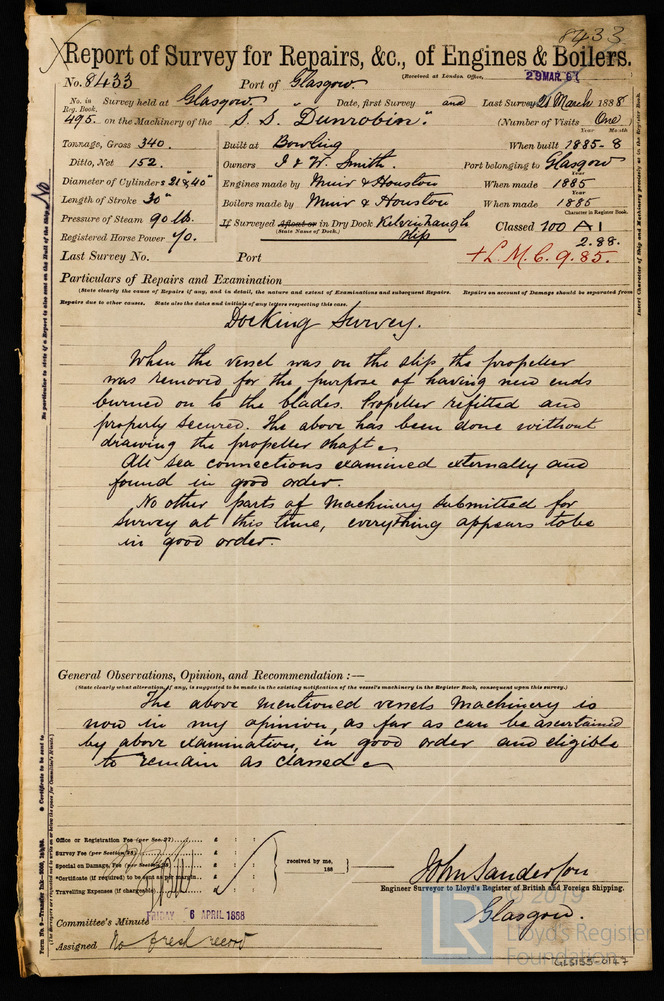 8433
Report of Survey for Repairs, &c., of Engines & Boilers.
(Received at London Office, 29 MAR. 8
No. 8433 Port of Glasgow
No. in Reg. Book. Survey held at Glasgow Date, first Survey " and Last Survey 21 March 1888
495. on the Machinery of the S. S. "Dunrobin". (Number of Visits One)
Year Month
Tonnage, Gross 340. Built at Bowling When built 1885-8
Ditto, Net 152. Owners J & W. Smith. Port belonging to Glasgow
Year
Diameter of Cylinders 21" & 40" Engines made by Muir & Houston When made 1885
Year
Length of Stroke 30" Boilers made by Muir & Houston When made 1885
Character in Register Book.
Pressure of Steam 90 lb. If Surveyed Afloat or in Dry Dock Kelvinhaugh Slip Classed 100 A1
(State Name of Dock.)
Registered Horse Power 70. 2.88.
Last Survey No. Port + L. M. C. 9.85.
Particulars of Repairs and Examination
(State clearly the cause of Repairs if any, and in detail, the nature and extent of Examinations and subsequent Repairs. Repairs on account of Damage should be separated from
Repairs due to other causes. State also the dates and initials of any letters respecting this case.
Docking Survey.
When the vessel was on the slip the propeller
was removed for the purpose of having new ends
burned on to the blades. Propeller refitted and
properly secured. The above has been done without
drawing the propeller shaft
All sea connections examined externally and
found in good order.
No other parts of machinery submitted for
survey at this time, everything appears to be
in good order.
General Observations, Opinion, and Recommendation :—
(State clearly what alteration, if any, is suggested to be made in the existing notification of the vessel's machinery in the Register Book, consequent upon this survey.)
The above mentioned vessels machinery is
now in my opinion, as far as can be ascertained
by above examination, in good order and eligible
to remain as classed
Office or Registration Fee (per Sec. 27) £ : :
Survey Fee (per Section 28) £ : :
Special on Damage, Fee (per Section 28) £ : :
*Certificate (if required) to be sent as per margin £ : :
Travelling Expenses (if chargeable) £ : :
received by me,
188
John Sanderson
Engineer Surveyor to Lloyd's Register of British and Foreign Shipping.
Glasgow.
Committee's Minute FRIDAY 6 APRIL 1888
Assigned No fresh record
No particular to state if a Report is also sent on the Hull of the Ship. No
Insert Character of Ship and Machinery precisely as in the Register Book.
* Certificate to be sent to
© 2019
LR
Lloyd's Register
Foundation
GLS155-0147